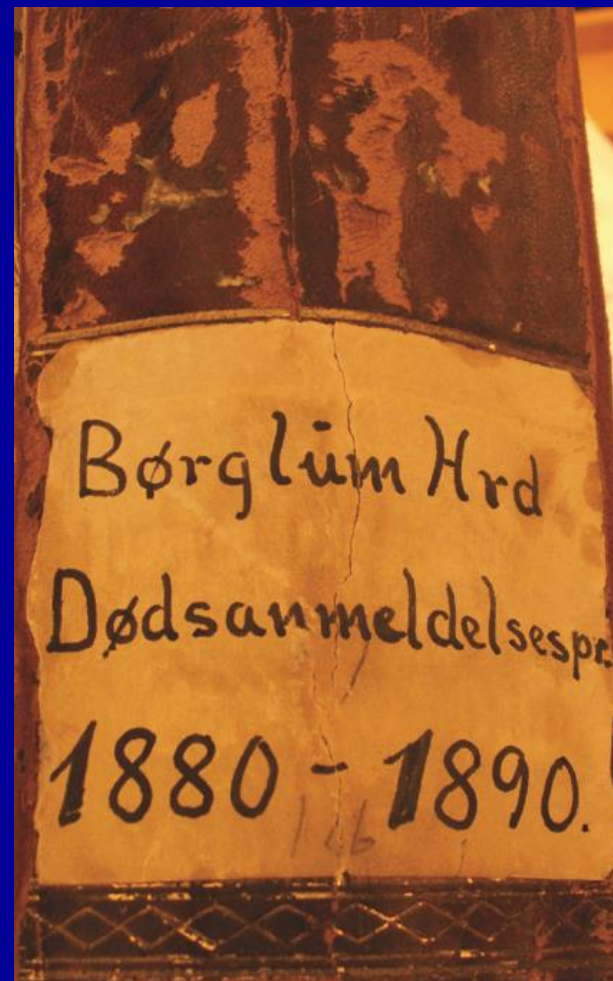 Børglum Hrd
Dødsanmeldelsespr.
1880 - 1890.